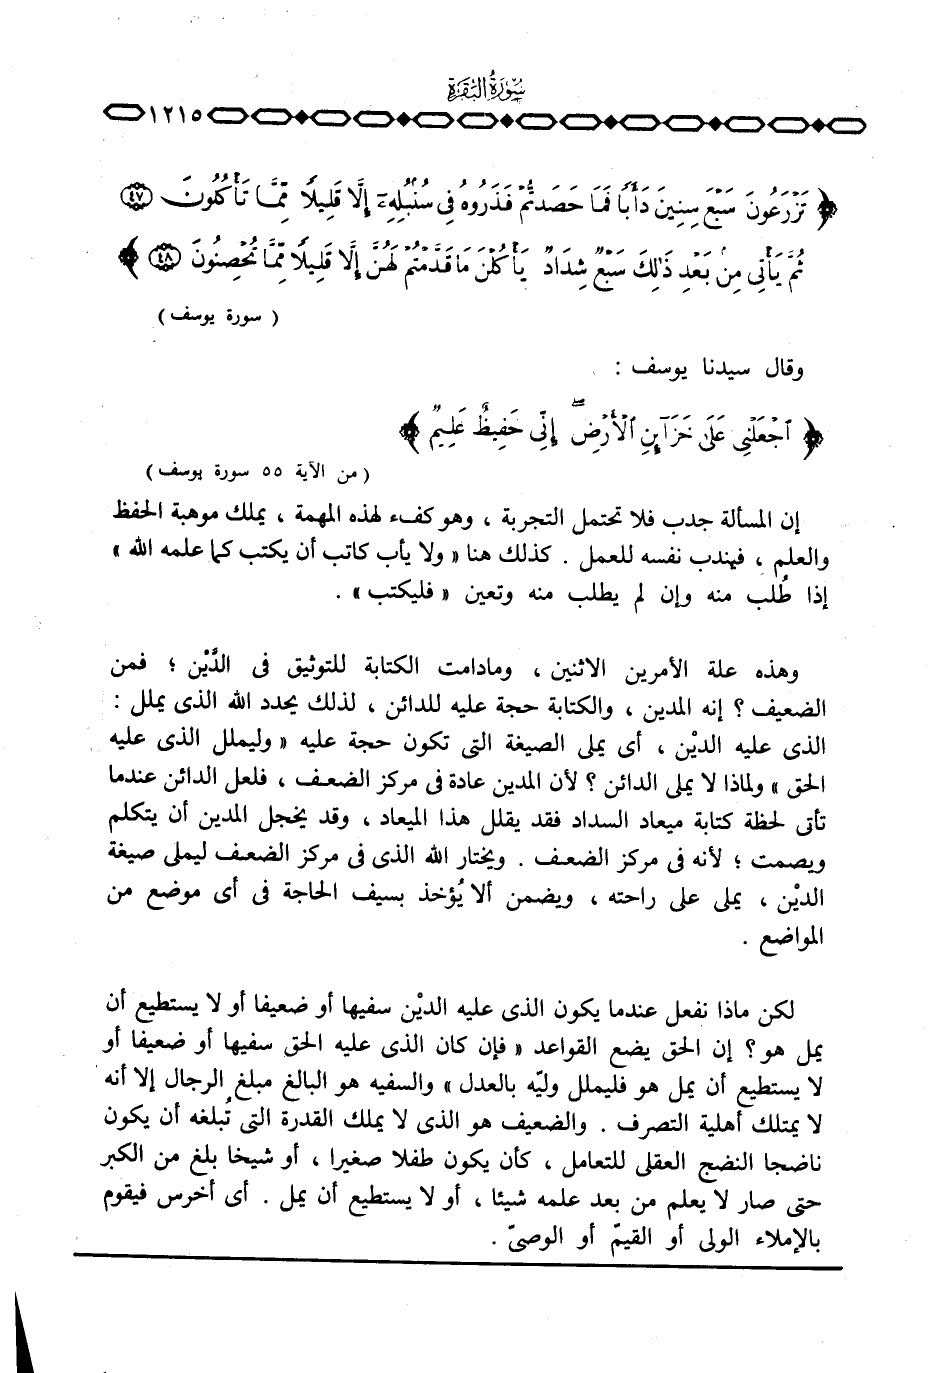 سورة البقرة
١٢١٥
﴿ تَزْرَعُونَ سَبْعَ سِنِينَ دَأَبًا فَمَا حَصَدتُّمْ فَذَرُوهُ فِى سُنۢبُلِهِۦٓ إِلَّا قَلِيلًا مِّمَّا تَأْكُلُونَ ٤٧
ثُمَّ يَأْتِى مِنۢ بَعْدِ ذَٰلِكَ سَبْعٌ شِدَادٌ يَأْكُلْنَ مَا قَدَّمْتُمْ لَهُنَّ إِلَّا قَلِيلًا مِّمَّا تُحْصِنُونَ ٤٨ ﴾
( سورة يوسف )
وقال سيدنا يوسف :
﴿ ٱجْعَلْنِى عَلَىٰ خَزَآئِنِ ٱلْأَرْضِ ۖ إِنِّى حَفِيظٌ عَلِيمٌ ﴾
( من الآية ٥٥ سورة يوسف )
إن المسألة جدب فلا تحتمل التجربة ، وهو كفء لهذه المهمة ، يملك موهبة الحفظ
والعلم ، فيندب نفسه للعمل . كذلك هنا « ولا يأب كاتب أن يكتب كما علمه الله »
إذا طُلب منه وإن لم يطلب منه وتعين « فليكتب » .
وهذه علة الأمرين الاثنين ، ومادامت الكتابة للتوثيق فى الدَّيْن ؛ فمن
الضعيف ؟ إنه المدين ، والكتابة حجة عليه للدائن ، لذلك يحدد الله الذى يملل :
الذى عليه الديْن ، أى يملى الصيغة التى تكون حجة عليه « وليملل الذى عليه
الحق » ولماذا لا يملى الدائن ؟ لأن المدين عادة فى مركز الضعف ، فلعل الدائن عندما
تأتى لحظة كتابة ميعاد السداد فقد يقلل هذا الميعاد ، وقد يخجل المدين أن يتكلم
ويصمت ؛ لأنه فى مركز الضعف . ويختار الله الذى فى مركز الضعف ليملى صيغة
الديْن ، يملى على راحته ، ويضمن ألا يُؤخذ بسيف الحاجة فى أى موضع من
المواضع .
لكن ماذا نفعل عندما يكون الذى عليه الديْن سفيها أو ضعيفا أو لا يستطيع أن
يمل هو ؟ إن الحق يضع القواعد « فإن كان الذى عليه الحق سفيها أو ضعيفا أو
لا يستطيع أن يمل هو فليملل وليّه بالعدل » والسفيه هو البالغ مبلغ الرجال إلا أنه
لا يمتلك أهلية التصرف . والضعيف هو الذى لا يملك القدرة التى تُبلغه أن يكون
ناضجا النضج العقلى للتعامل ، كأن يكون طفلا صغيرا ، أو شيخا بلغ من الكبر
حتى صار لا يعلم من بعد علمه شيئا ، أو لا يستطيع أن يمل . أى أخرس فيقوم
بالإملاء الولى أو القيمّ أو الوصىّ .